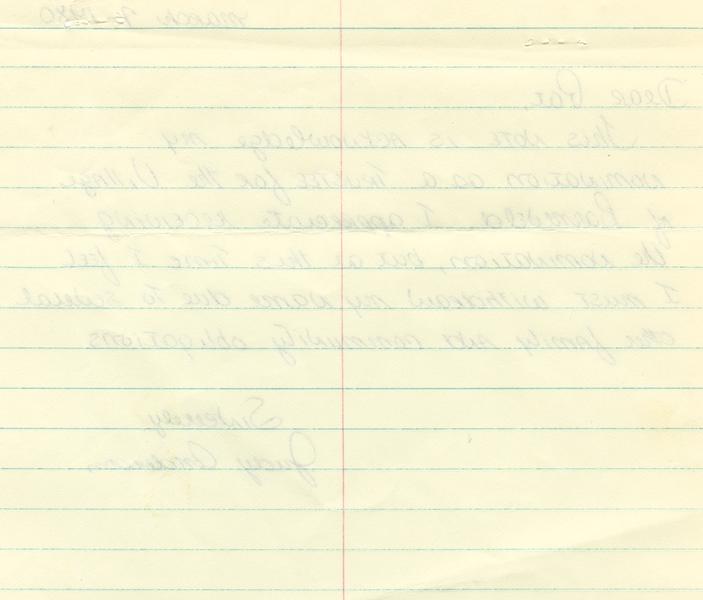 March 7, 1980
Dear Pat,
This note is to acknowledge my
nomination as a Trustee for the Village
of I appreciate receiving
the nomination, but at this time I feel
I must withdraw my name due to several
other family and community obligations
Sincerely
Judy Anderson